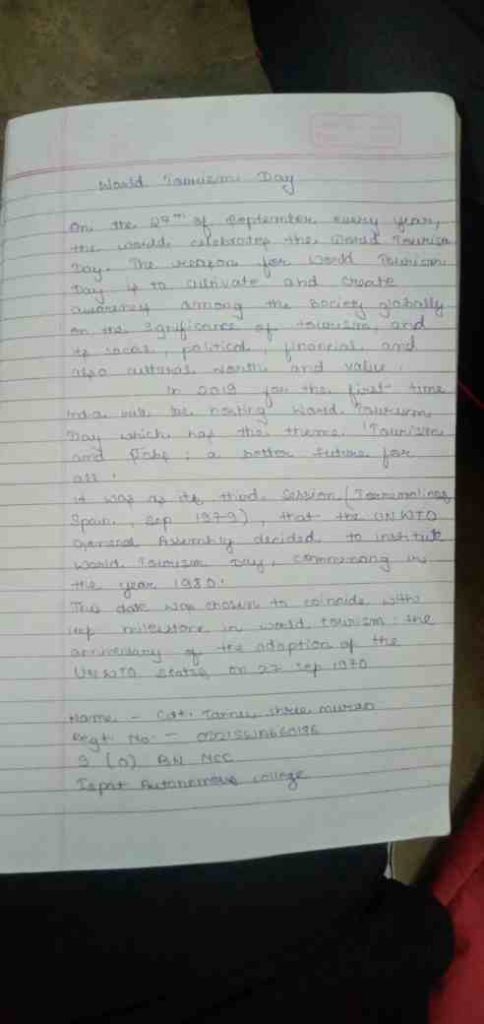 World Tourism Day
On the 27th of September every year,
the world celebrates the World Tourism
Day. The reason for World Tourism
Day is to cultivate and create
awareness among the society globally
on the significance of tourism, and
its social, political, financial and
also cultural worth and value.
In 2019 for the first time
India will be hosting World Tourism
Day which has the theme 'Tourism
and Jobs: a better future for
all'
It was at its third session (Torremolinos,
Spain, Sep 1979), that the UNWTO
General Assembly decided to institute
World Tourism Day, commencing in
the year 1980.
This date was chosen to coincide with
key milestone in world tourism: the
anniversary of the adoption of the
UNWTO states on 27 Sep 1970
Name - Cdt.
Regt. No. -
9 (O) BN NCC
Ispat Autonomous college